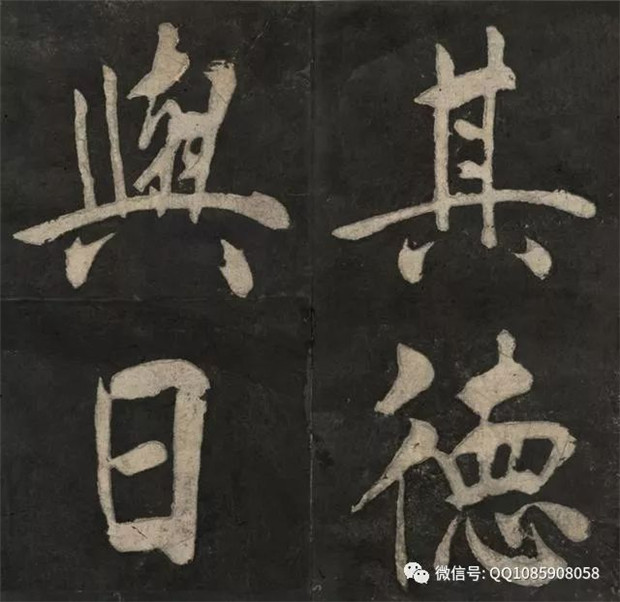 其德
與日
微信号: QQ1085908058